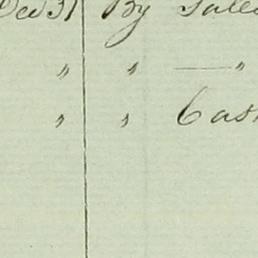 Dec 31 By Sales
" " — "
" " Cash